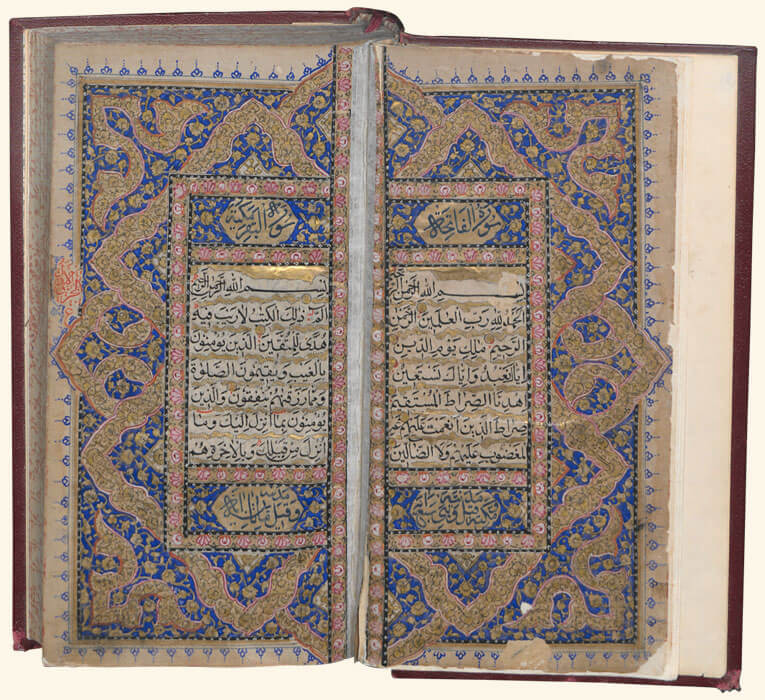 سورة الفاتحة
بسم الله الرحمن الرحيم
الحمد لله رب العلمين الرحمن
الرحيم ملك يوم الدين
اياك نعبد واياك نستعين
اهدنا الصراط المستقيم
صراط الذين انعمت عليهم غير
المغضوب عليهم ولا الضالين
سورة البقرة
بسم الله الرحمن الرحيم
الم ذلك الكتب لا ريب فيه
هدى للمتقين الذين يومنون
بالغيب ويقيمون الصلوة
ومما رزقنهم ينفقون والذين
يومنون بما انزل اليك وما
انزل من قبلك وبالاخرة هم